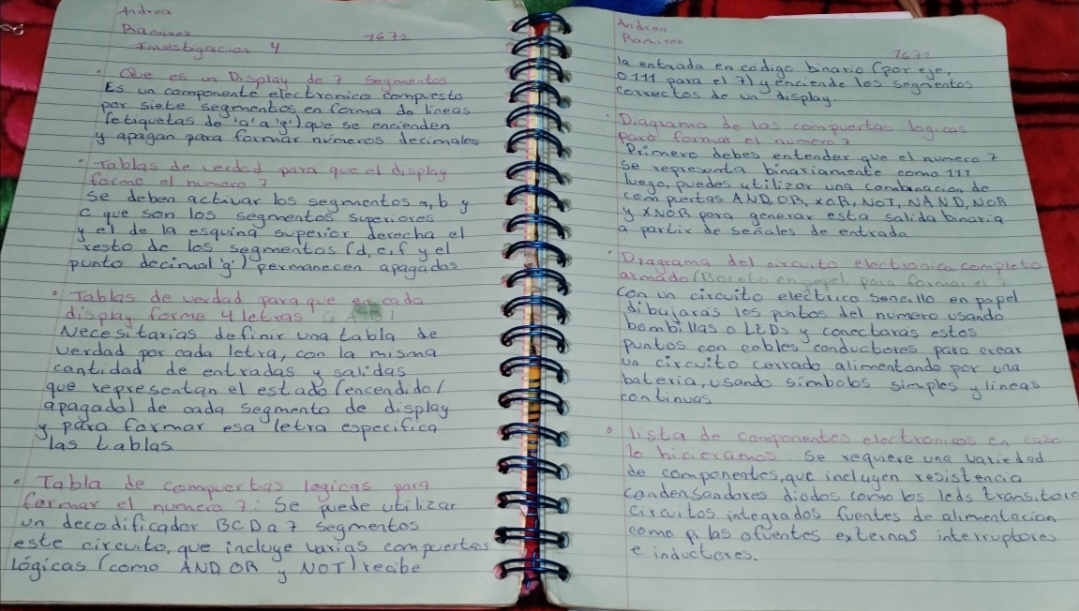 Andrea
Ramirez 1672
Investigacion 4
• Que es un Display de 7 segmentos
Es un componente electronico compuesto
por siete segmentos en forma de lineas
(etiquetas de 'a' a 'g') que se encienden
y apagan para formar números decimales
• Tablas de verdad para que el display
forme el numero 7
Se deben activar los segmentos a, b y
c que son los segmentos superiores
y el de la esquina superior derecha el
resto de los segmentos (d, e, f y el
punto decimal 'g') permanecen apagados
• Tablas de verdad para que en cada
display forme 4 letras
Necesitarias definir una tabla de
verdad por cada letra, con la misma
cantidad de entradas y salidas
que representan el estado (encendido/
apagado) de cada segmento de display
y para formar esa letra especifica
las tablas
• Tabla de compuertas logicas para
formar el numero 7: Se puede utilizar
un decodificador BCD a 7 segmentos
este circuito, que incluye varias compuertas
lógicas (como AND OR y NOT) recibe
Andrea
Ramirez 1672
la entrada en código binario (por eje,
0111 para el 7) y enciende los segmentos
correctos de un display
• Diagrama de las compuertas logicas
para formar el numero 7
Primero debes entender que el numero 7
se representa binariamente como 111
luego, puedes utilizar una combinacion de
compuertas AND, OR, XOR, NOT, NAND, NOR
y XNOR para generar esta salida binaria
a partir de señales de entrada
• Diagrama del circuito electronico completo
armado (Boceto en papel para formar el 7
Con un circuito electrico sencillo en papel
dibujaras los puntos del numero usando
bombillas o LEDs y conectaras estos
puntos con cables conductores para crear
un circuito cerrado alimentando por una
bateria, usando simbolos simples y lineas
continuas
• lista de componentes electronicos en caso
lo hicieramos: Se requiere una variedad
de componentes, que incluyen resistencia
condensandores diodos como los leds transitore
circuitos integrados fuentes de alimentacion
como las ofuentes externas interruptores
e inductores.